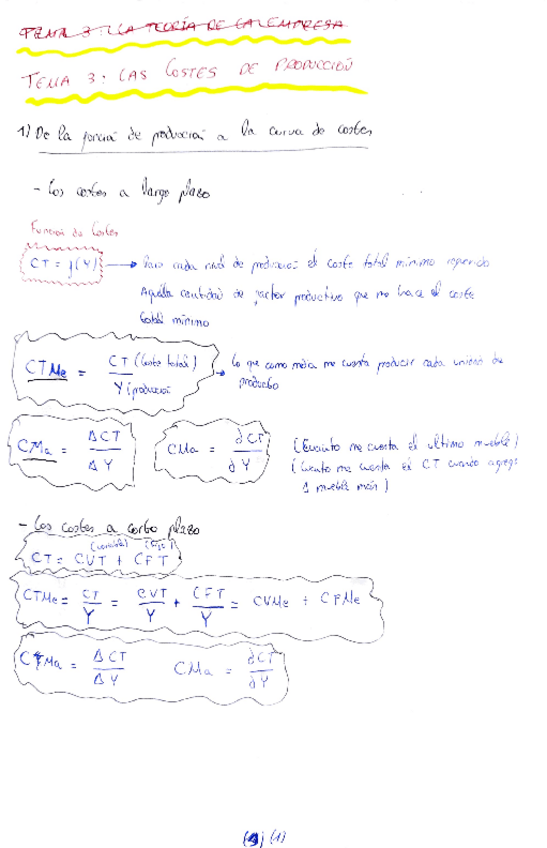 TEMA 3: LA TEORÍA DE LA EMPRESA
TEMA 3: LAS COSTES DE PRODUCCIÓN
1) De la función de producción a la curva de costes
- Los costes a largo plazo
Función de Costes
CT = f(Y) → Para cada nivel de producción el coste total mínimo requerido
Aquella cantidad de factor productivo que me hace el coste
total mínimo
CTMe = CT (Coste total) / Y (producción → Lo que como media me cuesta producir cada unidad de
producto
CMa = ΔCT / ΔY CMa = ∂CT / ∂Y (Cuánto me cuesta el último mueble)
(Cuánto me cuesta el CT cuando agrego
1 mueble más)
- Los costes a corto plazo
(variable) (fijo)
CT = CVT + CFT
CTMe = CT / Y = CVT / Y + CFT / Y = CVMe + CFMe
CMa = ΔCT / ΔY CMa = ∂CT / ∂Y
(1)